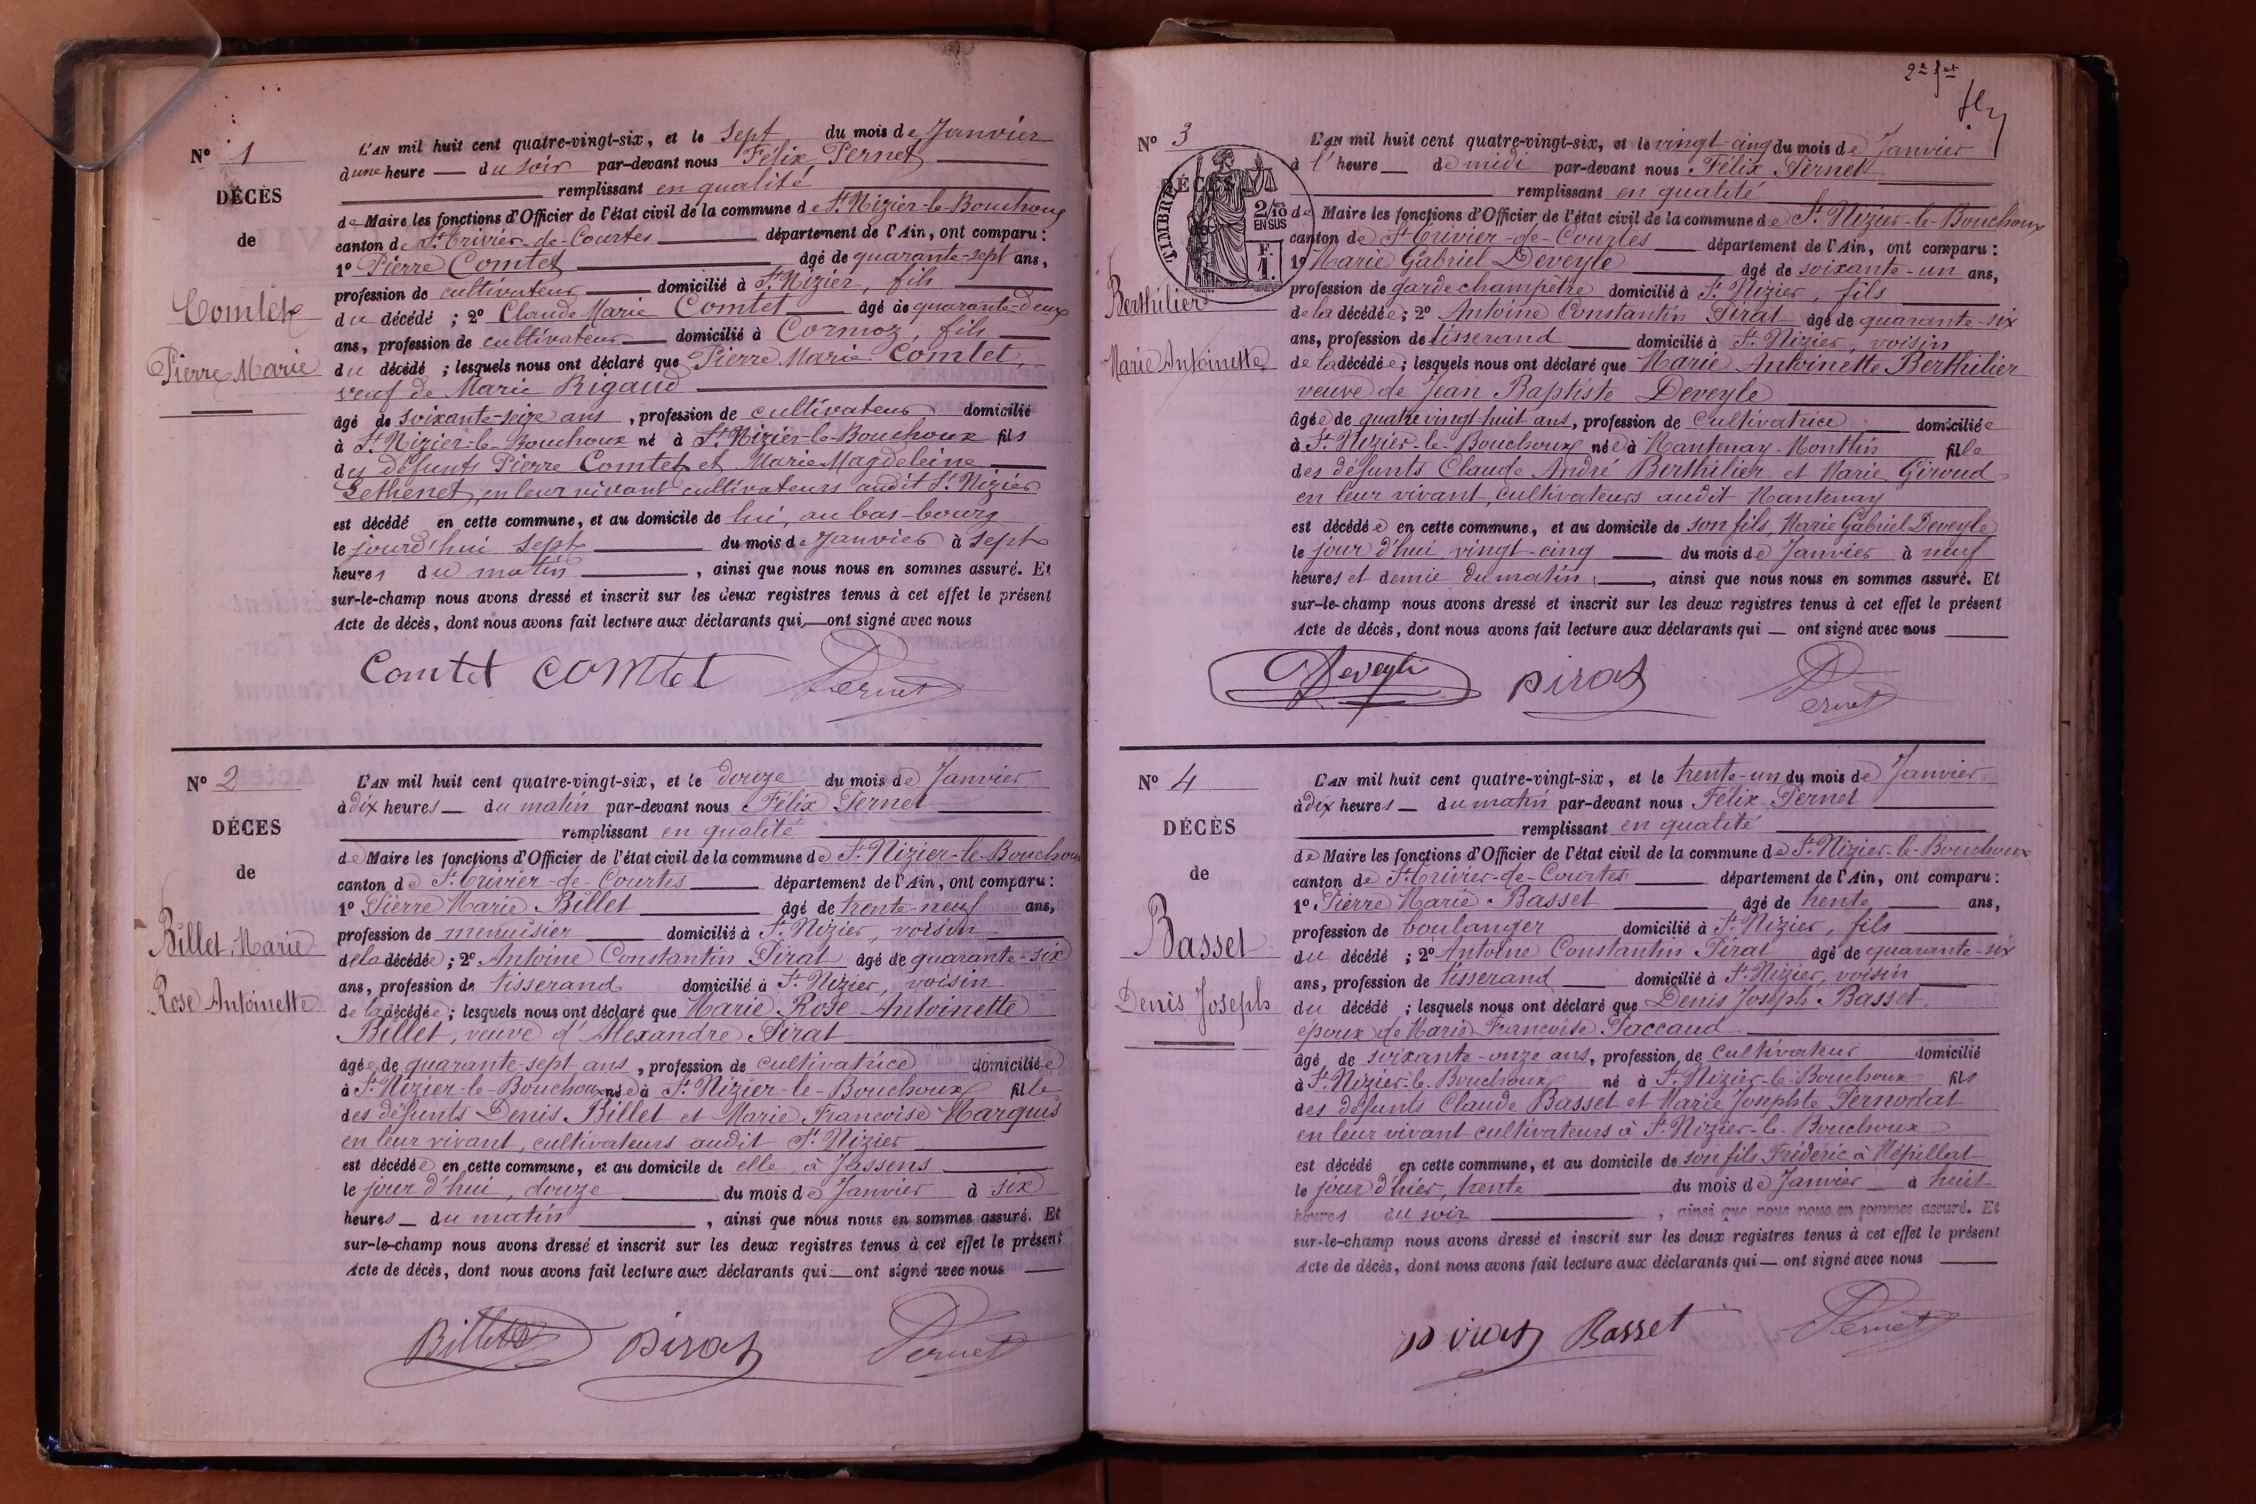 N° 1
DÉCÈS
de
Comtet
Pierre Marie
L'AN mil huit cent quatre-vingt-six, et le sept du mois de Janvier
à une heure — du soir par-devant nous Félix Pernet
remplissant en qualité
de Maire les fonctions d'Officier de l'état civil de la commune de St Nizier-le-Bouchoux
canton de St Trivier-de-Courtes département de l'Ain, ont comparu :
1° Pierre Comtet âgé de quarante-sept ans,
profession de cultivateur domicilié à St Nizier, fils
du décédé ; 2° Claude Marie Comtet âgé de quarante-deux
ans, profession de cultivateur domicilié à Cormoz, fils
du décédé ; lesquels nous ont déclaré que Pierre Marie Comtet,
veuf de Marie Rigaud
âgé de soixante-seize ans, profession de cultivateur domicilié
à St Nizier-le-Bouchoux né à St Nizier-le-Bouchoux fils
des défunts Pierre Comtet et Marie Magdeleine
Gethenet, en leur vivant cultivateurs audit St Nizier
est décédé en cette commune, et au domicile de lui, au bas-bourg
le jourd'hui sept du mois de Janvier à sept
heures du matin, ainsi que nous nous en sommes assuré. Et
sur-le-champ nous avons dressé et inscrit sur les deux registres tenus à cet effet le présent
Acte de décès, dont nous avons fait lecture aux déclarants qui, — ont signé avec nous
Comtet Comtet Pernet
N° 2
DÉCES
de
Billet, Marie
Rose Antoinette
L'AN mil huit cent quatre-vingt-six, et le douze du mois de Janvier
à dix heures — du matin par-devant nous Félix Pernet
remplissant en qualité
de Maire les fonctions d'Officier de l'état civil de la commune de St Nizier-le-Bouchoux
canton de St Trivier-de-Courtes département de l'Ain, ont comparu :
1° Pierre Marie Billet âgé de trente-neuf ans,
profession de menuisier domicilié à St Nizier, voisin
de la décédée ; 2° Antoine Constantin Pirat âgé de quarante-six
ans, profession de tisserand domicilié à St Nizier, voisin
de la décédée ; lesquels nous ont déclaré que Marie Rose Antoinette
Billet, veuve d'Alexandre Pirat
âgée de quarante-sept ans, profession de cultivatrice domiciliée
à St Nizier-le-Bouchoux née à St Nizier-le-Bouchoux fille
des défunts Denis Billet et Marie Françoise Marquis
en leur vivant, cultivateurs audit St Nizier
est décédée en cette commune, et au domicile de elle, à Jassens
le jour d'hui, douze du mois de Janvier à six
heures — du matin, ainsi que nous nous en sommes assuré. Et
sur-le-champ nous avons dressé et inscrit sur les deux registres tenus à cet effet le présent
Acte de décès, dont nous avons fait lecture aux déclarants qui — ont signé avec nous
Billet Pirat Pernet
N° 3
DÉCÈS
TIMBRE
2/10
EN SUS
F.
1.
Berthilier
Marie Antoinette
L'AN mil huit cent quatre-vingt-six, et le vingt-cinq du mois de Janvier
à l'heure — de midi par-devant nous Félix Pernet
remplissant en qualité
de Maire les fonctions d'Officier de l'état civil de la commune de St Nizier-le-Bouchoux
canton de St Trivier-de-Courtes département de l'Ain, ont comparu :
1° Marie Gabriel Deveyle âgé de soixante-un ans,
profession de garde champêtre domicilié à St Nizier, fils
de la décédée ; 2° Antoine Constantin Pirat âgé de quarante-six
ans, profession de tisserand domicilié à St Nizier, voisin
de la décédée ; lesquels nous ont déclaré que Marie Antoinette Berthilier
veuve de Jean Baptiste Deveyle
âgée de quatre vingt huit ans, profession de cultivatrice domiciliée
à St Nizier-le-Bouchoux née à Mantenay-Montlin fille
des défunts Claude André Berthilier et Marie Giroud
en leur vivant, cultivateurs audit Mantenay
est décédée en cette commune, et au domicile de son fils, Marie Gabriel Deveyle
le jour d'hui vingt-cinq du mois de Janvier à neuf
heures et demie du matin, ainsi que nous nous en sommes assuré. Et
sur-le-champ nous avons dressé et inscrit sur les deux registres tenus à cet effet le présent
Acte de décès, dont nous avons fait lecture aux déclarants qui — ont signé avec nous
Deveyle Pirat Pernet
N° 4
DÉCÈS
de
Basset
Denis Joseph
L'AN mil huit cent quatre-vingt-six, et le trente-un du mois de Janvier
à dix heures — du matin par-devant nous Félix Pernet
remplissant en qualité
de Maire les fonctions d'Officier de l'état civil de la commune de St Nizier-le-Bouchoux
canton de St Trivier-de-Courtes département de l'Ain, ont comparu :
1° Pierre Marie Basset âgé de trente ans,
profession de boulanger domicilié à St Nizier, fils
du décédé ; 2° Antoine Constantin Pirat âgé de quarante-six
ans, profession de tisserand domicilié à St Nizier, voisin
du décédé ; lesquels nous ont déclaré que Denis Joseph Basset
époux de Marie Françoise Paccaud
âgé de soixante-onze ans, profession de cultivateur domicilié
à St Nizier-le-Bouchoux né à St Nizier-le-Bouchoux fils
des défunts Claude Basset et Marie Josephte Pernodat
en leur vivant cultivateurs à St Nizier-le-Bouchoux
est décédé en cette commune, et au domicile de son fils Frédéric à Népillat
le jour d'hier, trente du mois de Janvier à huit
heures du soir, ainsi que nous nous en sommes assuré. Et
sur-le-champ nous avons dressé et inscrit sur les deux registres tenus à cet effet le présent
Acte de décès, dont nous avons fait lecture aux déclarants qui — ont signé avec nous
Pirat Basset Pernet